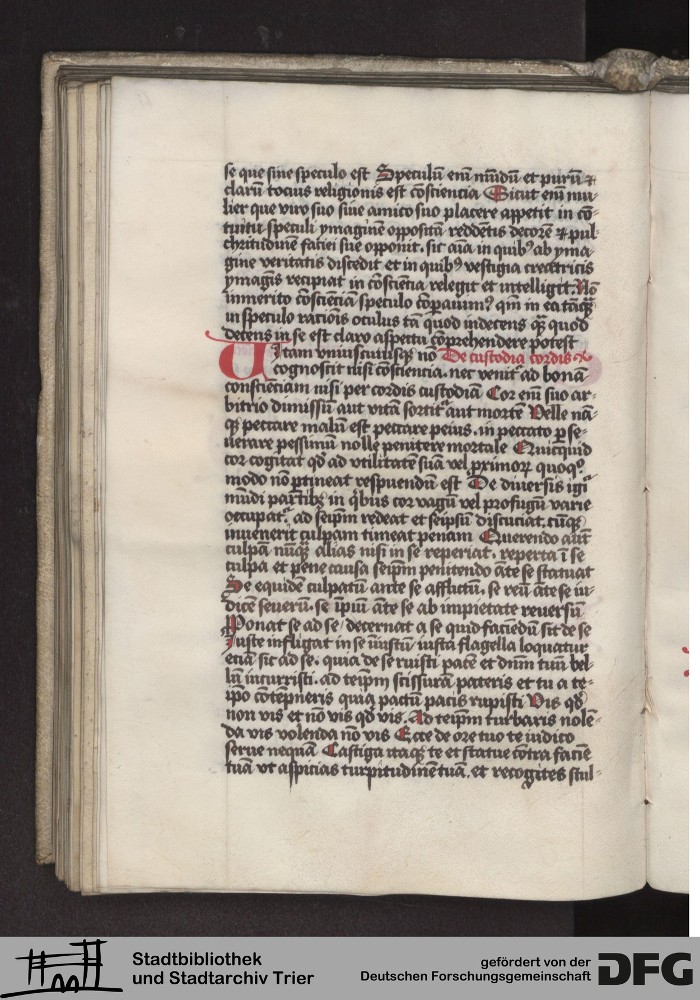 se que sine speculo est Speculū eni᷒ mūdū et purū ⁊
clarū tocius religionis est cōsciencia Sicut eni᷒ mu-
lier que viro suo siue amico suo placere appetit in cō-
tuitu speculi ymaginē oppositā reddētis decorē ⁊ pul
chritudinē faciei sue opponit. sic aīa in quibꝰ ab yma-
gine veritatis discedit et in quibꝰ vestigia creatricis
ymagīs recipiat in cōsciētia relegit et intelligit. Nō
inmerito cōsciēciam speculo cōpauimꝰ qm̄ in ea tāqꝫ
in speculo racionis oculus tā quod indecens qꝫ quod
decens in se est claro aspectu cōprehendere potest
Uitam vniuscuiusqꝫ nō De custodia cordis
cognoscit nisi cōsciencia. nec venit᷑ ad bonā
conscienciam nisi per cordis custodiā Cor eni᷒ suo ar-
bitrio dimissū aut vitā sortit᷑ aut mortē Velle nā-
qꝫ peccare malū est peccare peius. in peccato ꝑse-
uerare pessimū nolle penitere mortale Quicquid
cor cogitat qd̄ ad vtilitatē suā vel ꝓximorꝫ quoqꝫ
modo nō ꝑtineat respuendū est De diuersis igi᷑
mūdi partibꝫ in q̄bus cor vagū vel profugū varie
occupat᷑. ad seip̄m redeat et seipsū discuciat. cūqꝫ
inuenerit culpam timeat penam Querendo aūt
culpā nūqꝫ alias nisi in se reperiat. reperta ī se
culpa et pene causa seip̄m penitendo āte se statuat
Se equidē culpatū ante se afflictū. se reū āte se iu-
dicē seuerū. se īpiū āte se ab impietate reuersū
Ponat se ad se / decernat a se quid faciēdū sit de se
Iuste infligat in se iniustū iusta flagella loquatur
eciā sic ad se. quia de se ruisti pacē et dn̄m tuū bel-
lū incurristi. ad teip̄m scissurā pateris et tu a te-
ip̄o cōtēpneris quia pactū pacis rupisti Vis qd̄
non vis et nō vis qd̄ vis. Ad teip̄m turbaris nolē-
da vis volenda nō vis Ecce de ore tuo te iudico
serue nequā Castiga itaqꝫ te et statue cōtra faciē
tuā vt aspicias turpitudinē tuā. et recogites stul-
Stadtbibliothek
und Stadtarchiv Trier
gefördert von der
Deutschen Forschungsgemeinschaft
DFG